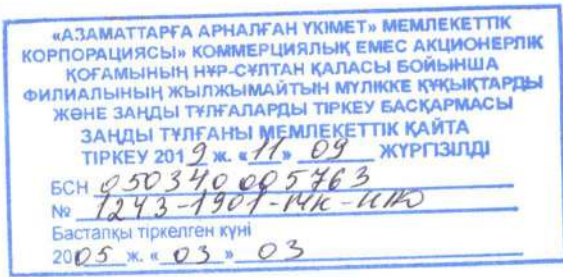 «АЗАМАТТАРҒА АРНАЛҒАН ҮКІМЕТ» МЕМЛЕКЕТТІК
КОРПОРАЦИЯСЫ» КОММЕРЦИЯЛЫҚ ЕМЕС АКЦИОНЕРЛІК
ҚОҒАМЫНЫҢ НҰР-СҰЛТАН ҚАЛАСЫ БОЙЫНША
ФИЛИАЛЫНЫҢ ЖЫЛЖЫМАЙТЫН МҮЛІККЕ ҚҰҚЫҚТАРДЫ
ЖӘНЕ ЗАҢДЫ ТҰЛҒАЛАРДЫ ТІРКЕУ БАСҚАРМАСЫ
ЗАҢДЫ ТҰЛҒАНЫ МЕМЛЕКЕТТІК ҚАЙТА
ТІРКЕУ 2019 ж. «11» 09 ЖҮРГІЗІЛДІ
БСН 050340005763
№ 1243-1901-МК-ИЮ
Бастапқы тіркелген күні
2005 ж. «03» 03